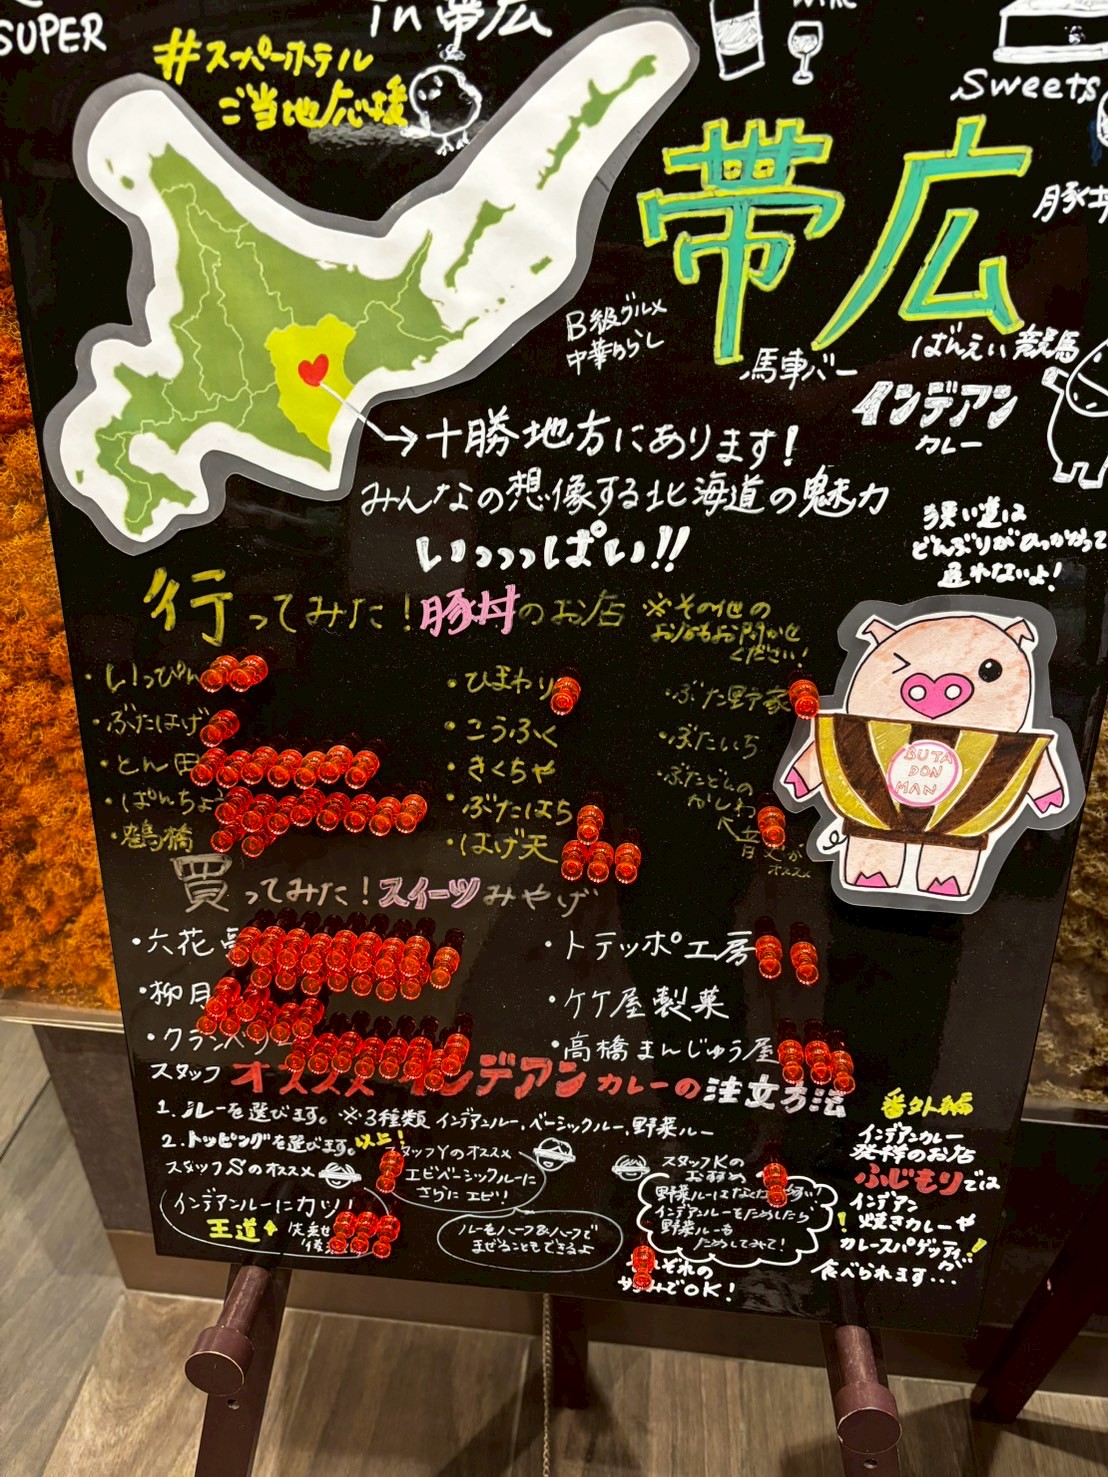 SUPER
in 帯広
#スーパーホテル
ご当地応援
Sweets
帯広
豚丼
B級グルメ
中華ちらし
馬車バー
ばんえい競馬
インデアン
カレー
→十勝地方にあります!
みんなの想像する北海道の魅力
いっっっぱい!!
狭い道は
どんぶりがひっかかって
通れないよ!
行ってみた!豚丼のお店
※その他の
お店もお聞かせ
ください!
・いっぴん
・ひまわり
・ぶた野家
・ぶたはげ
・こうふく
・ぶたいち
・とん田
・さくちや
・ぶたどんの
かしわ
・ぱんちょう
・ぶたはち
・鶴橋
・はげ天
オススメ
BUTA
DON
MAN
買ってみた!スイーツみやげ
・六花
・トテッポ工房
・柳月
・ケケ屋製菓
・クランベリー
・高橋まんじゅう屋
スタッフオススメインデアンカレーの注文方法
1. ルーを選びます。※3種類 インデアンルー、ベーシックルー、野菜ルー
2. トッピングを選びます。以上!
スタッフSのオススメ
インデアンルーにカツ!
王道
スタッフYのオススメ
エビベーシックルーに
さらに エビ!
ルーをハーフ&ハーフで
まぜることもできるよ
スタッフKの
お勧め
野菜ルーは
インデアンルーをためしたら
野菜ルーも
ためしてみて!
OK!
番外編
インデアンカレー
発祥のお店
ふじもりでは
インデアン
焼きカレーや
カレースパゲッティ!
が
食べられます…